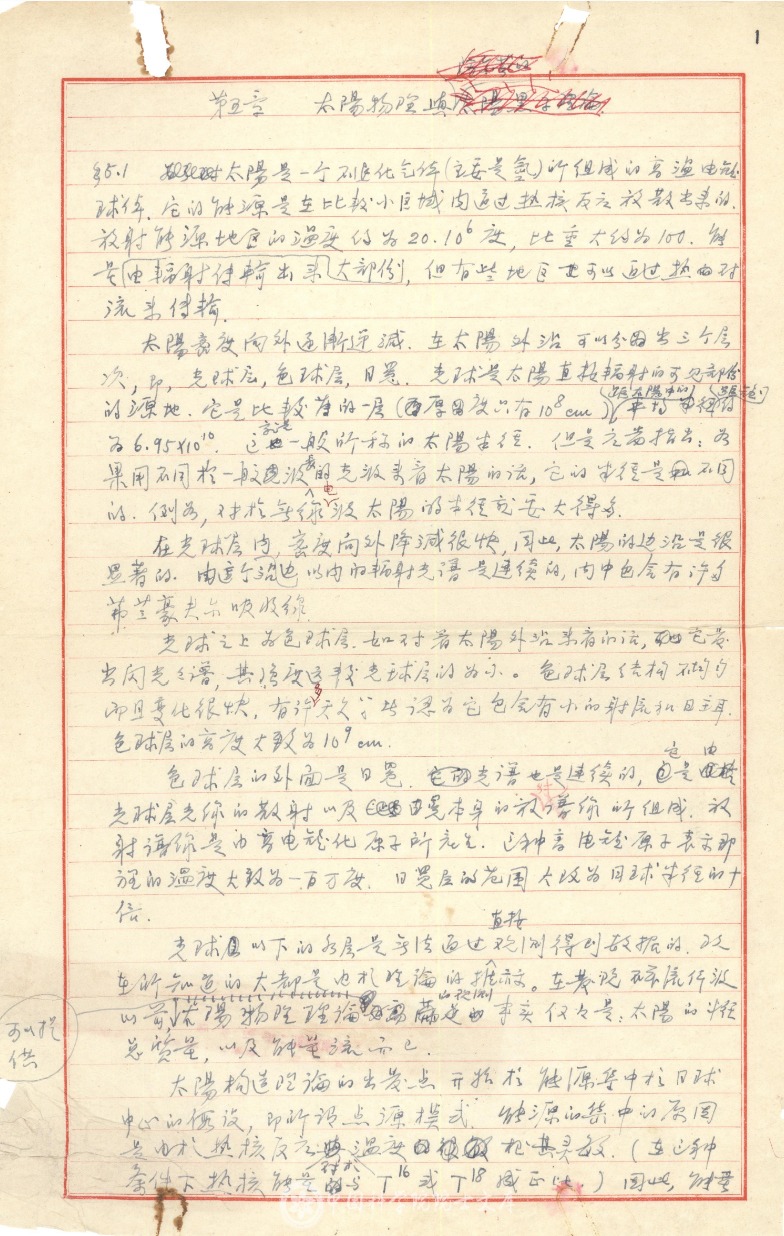 1
第五章 太陽物理
§5.1 太陽是一个不退化气体(主要是氫)所组成的高温电离
球体. 它的能源是在比較小区域内通过热核反应放散出来的.
放射能源地区的温度约为20·10⁶度, 比重大约为100. 能
量由辐射传输出来大部份, 但有些地区也可以通过热的对
流来传输.
太陽密度向外逐漸递减. 在太陽外沿可以分出三个层
次, 即, 光球层, 色球层, 日冕. 光球是太陽直接辐射的可见部份
的源地. 它是比較薄的一层(厚度只有10⁸cm)
为6.95×10¹⁰. 这是一般所称的太陽半径. 但是应当指出: 如
果用不同於一般波長的光波来看太陽的话, 它的半径是不同
的. 例如, 对於无线电波太陽的半径就要大得多.
在光球层内, 密度向外降减很快, 因此, 太陽的边沿是很
显著的. 由这个边沿以内的辐射光谱是連续的, 内中包含有许多
弗兰豪夫尔吸收線.
光球之上为色球层. 如对着太陽外沿来看的话, 它发
出闪光光谱, 其强度这較光球层的为小。色球层结构不均匀
而且变化很快, 有许多天文学者认为它包含有小的射流和日珥.
色球层的高度大致为10⁹cm.
色球层的外面是日冕. 光谱也是連续的, 它是由
光球层光線的散射以及日冕本身的放射谱線所组成. 放
射谱線是由高电离化原子所产生. 这种高电离原子表示那
裡的温度大致为一百万度. 日冕层的范围大致为日球半径的十
倍.
光球以下的各层是无法通过直接观测得到数据的. 现
在所知道的大都是由於理论的推演。在发现
以前, 太陽物理理论 由观测 事实仅仅是: 太陽的半径
总質量, 以及能量流而已.
可以提
供
太陽构造理论的出发点开始於能源集中於日球
中心的假设, 即所谓点源模式. 能源的集中的原因
是由於热核反应对於温度极其灵敏. (在这种
条件下热核能量的与T¹⁶或T¹⁸成正比) 因此, 能量